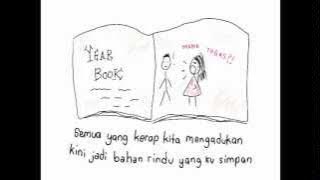 YEAR
BOOK
Semua yang kerap kita mengadukan
kini jadi bahan rindu yang ku simpan